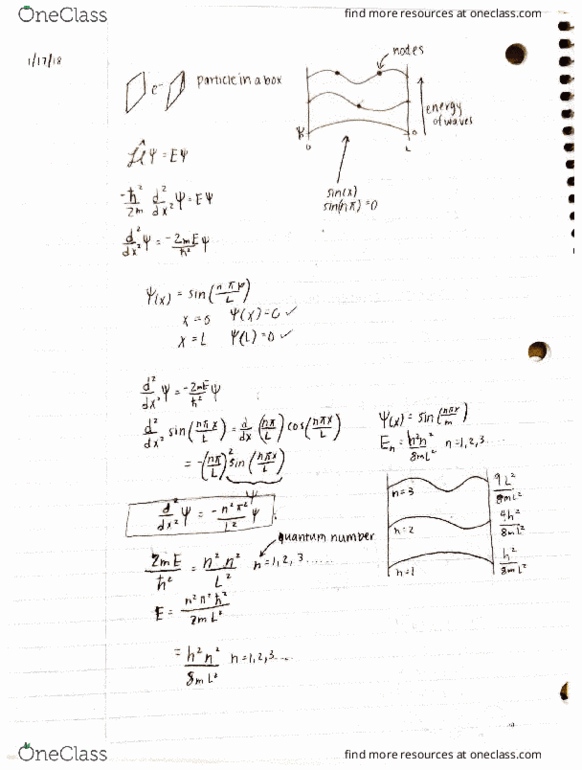 OneClass
find more resources at oneclass.com
1/17/18
e⁻ particle in a box
nodes
energy of waves
0 L
sin(x)
sin(nπ)=0
Ĥψ = Eψ
-ħ²/2m d²/dx² ψ = Eψ
d²/dx² ψ = -2mE/ħ² ψ
ψ(x) = sin(nπx/L)
x = 0 ψ(x) = 0 ✓
x = L ψ(L) = 0 ✓
d²/dx² ψ = -2mE/ħ² ψ
d²/dx² sin(nπx/L) = d/dx (nπ/L) cos(nπx/L)
= -(nπ/L)² sin(nπx/L)
ψ
d²/dx² ψ = -n²π²/L² ψ
quantum number
2mE/ħ² = n²π²/L² n=1,2,3......
E = n²π²ħ²/2mL²
= h²n²/8mL² n=1,2,3...
ψ(x) = sin(nπx/m)
Eₙ = h²n²/8mL² n=1,2,3...
n=3 9h²/8mL²
n=2 4h²/8mL²
n=1 h²/8mL²
OneClass
find more resources at oneclass.com